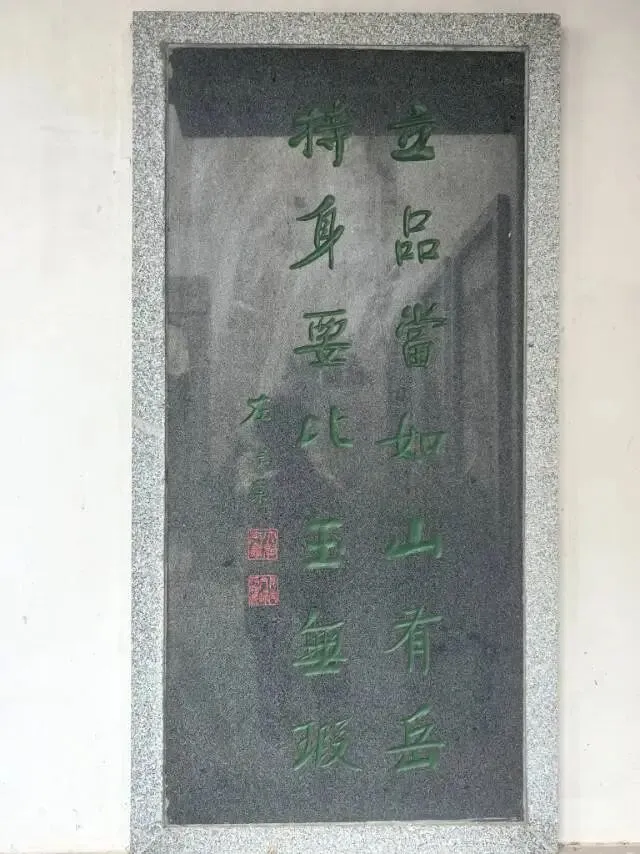 立品當如山有岳
持身要比玉無瑕
左宗棠